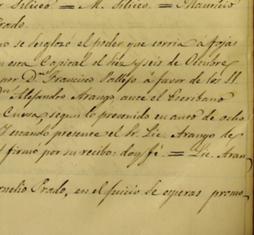 Silceo. = M. Silceo. = Mauricio
Prado.
no se desglozó el poder que corria á fojas
en esta Capital el dia seis de Octubre
por Dn Francisco Pallejo á favor de los
Dn Alejandro Arango ante el Escribano
Cueva, segun lo prevenido en auto de ocho
Y estando presente el Sr. Lic. Arango de
firmó por su recibo: doy fé. = Lic. Aran
Cornelio Prado, en el juicio de esperas promo-